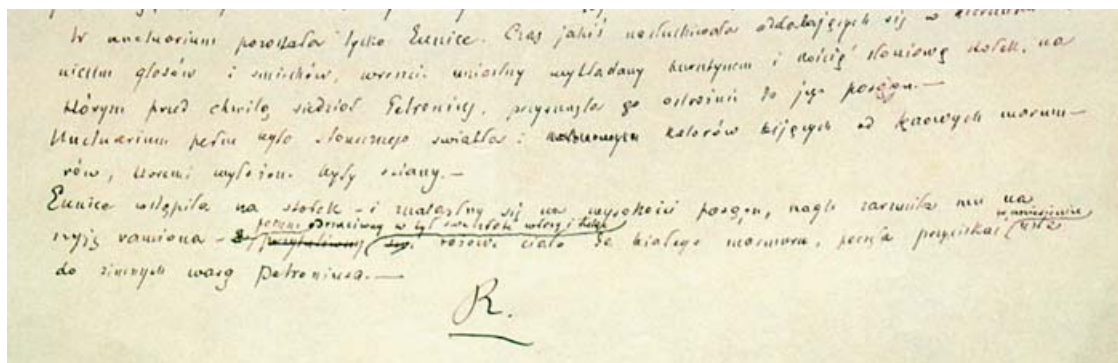 W unctuarium pozostała tylko Eunice. Czas jakiś nasłuchiwała oddalających się w kierunku
głosów i śmiechów, wreszcie wziąwszy wykładany bursztynem i kością słoniową stołek, na
którym przed chwilą siedział Petroniusz, przysunęła go ostrożnie do jego posągu.—
Unctuarium pełne było słonecznego światła i kolorów bijących od marmu—
rów, któremi wyłożone były ściany.—
Eunice wstąpiła na stołek – i znalazłszy się na wysokości posągu, nagle zarzuciła mu na
poczem odrzuciwszy w tył swe włosy i tuląc w uniesieniu
szyję ramiona – różowe ciało do białego marmuru, poczęła przyciskać usta
do zimnych warg Petroniusza.—
R.